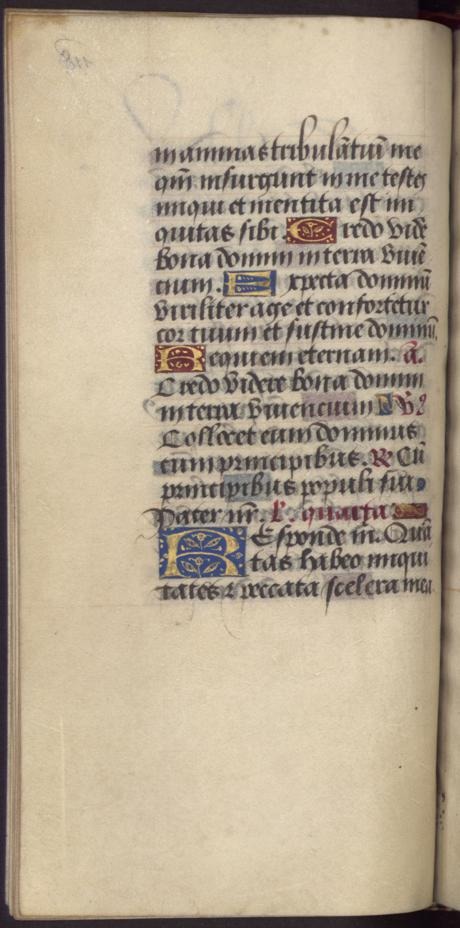 in animas tribulātiū me
qm̄ insurgunt in me testes
iniqui et mentita est ini
quitas sibi. Credo vidē
bona domini in terra viuē
tium. Expecta dominū
viriliter age et confortetur
cor tuum et sustine dominū.
Requiem eternam. a.
Credo videre bona domini
in terra viuencium. v.
Collocet eum dominus
cum principibus. R. Cū
principibus populi sui.
Pater nr̄. l. quarta
REsponde m̄. Quā
tas habeo iniqui
tates & peccata scelera mea